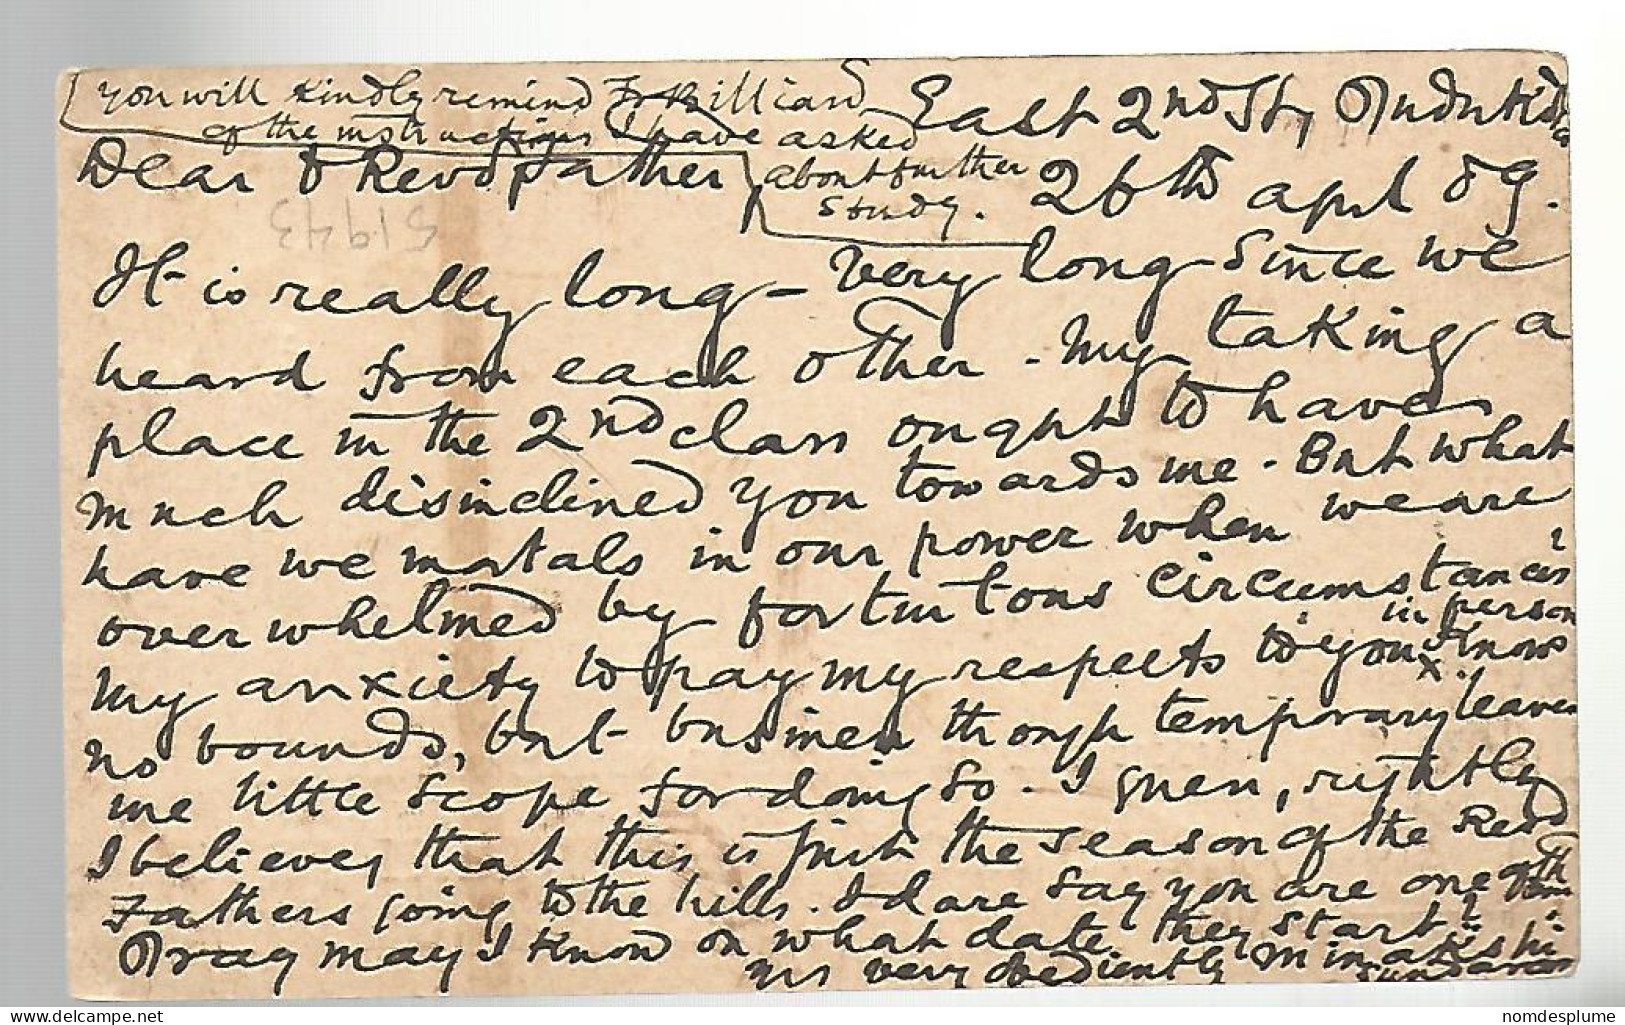 you will kindly remind Fr Billiard
of the instructions I have asked
about further
study.
East 2nd St,
26th April 89.
Dear & Revd father
51943
It is really long - very long since we
heard from each other - My taking a
place in the 2nd class ought to have
much disinclined you towards me - But what
have we mortals in our power when we are
overwhelmed by fortuitous circumstances?
My anxiety to pay my respects to you in person know
no bounds, but business though temporary leaves
me little scope for doing so. I guess, rightly
I believe, that this is just the season of the Revd
Fathers going to the hills. I dare say you are one of them
Pray may I know on what date they start?
Yrs very obediently Minakshi
Sundaram
nomdesplume
delcampe.net